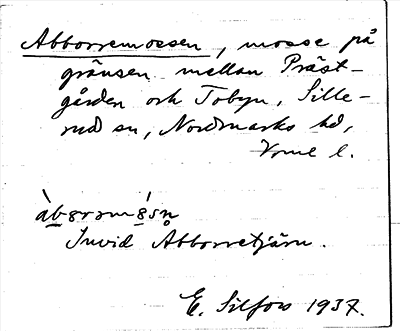 Abborremossen, mosse på
gränsen mellan Präst-
gården och Tobyn, Sille-
rud sn, Nordmarks hd,
Vrml l.
Invid Abborretjärn.
E. Silfors 1937.